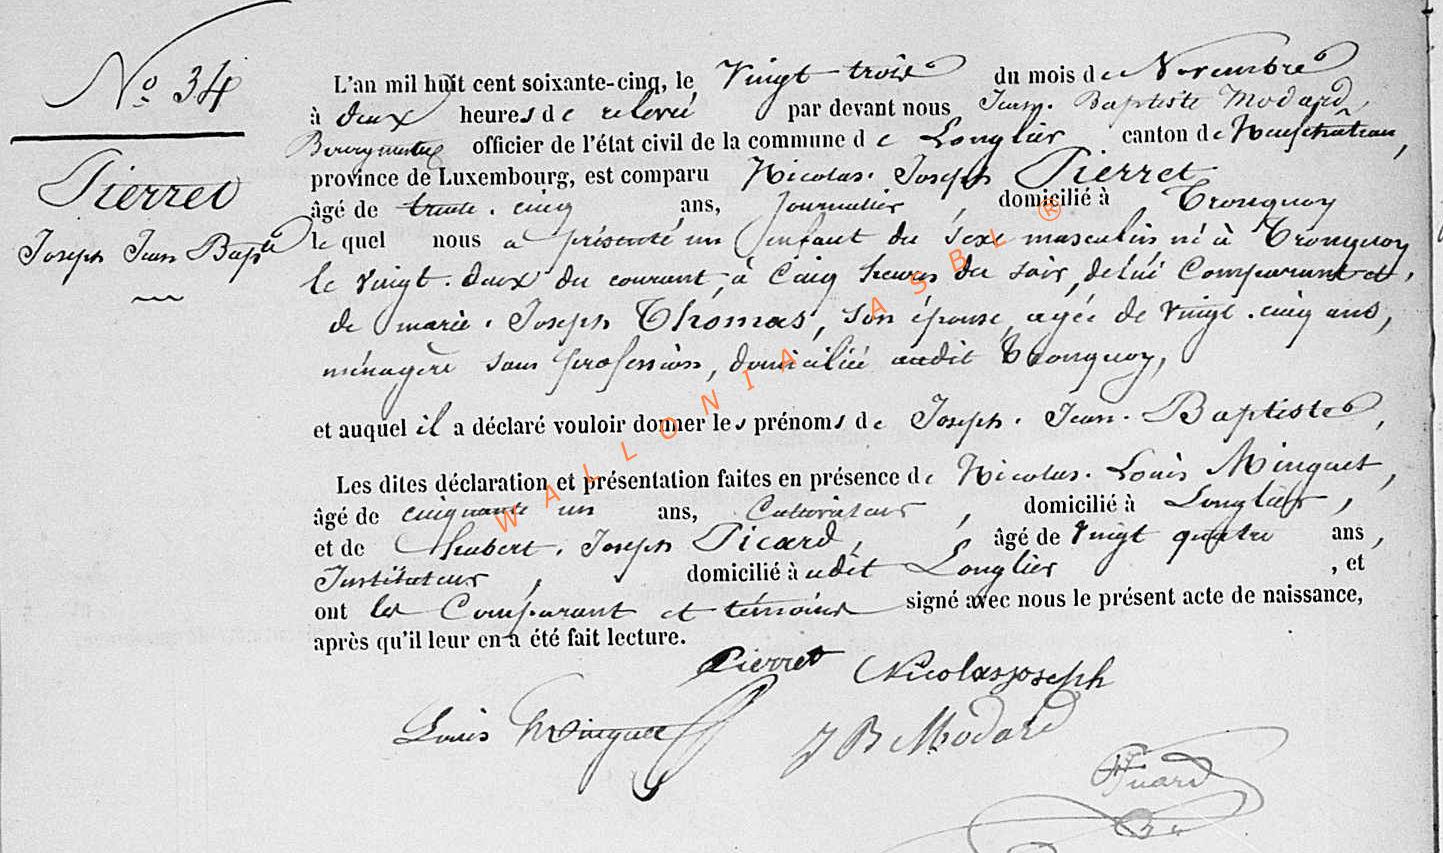 No. 34
Pierret
Joseph Jean Bapte
L'an mil huit cent soixante-cinq, le Vingt trois du mois de Novembre
à deux heures de relevée par devant nous Jean-Baptiste Modard,
Bourgmestre officier de l'état civil de la commune de Longlier canton de Neufchâteau,
province de Luxembourg, est comparu Nicolas Joseph Pierret
âgé de trente-cinq ans, journalier, domicilié à Tronquoy
le quel nous a présenté un enfant du sexe masculin né à Tronquoy
le vingt-deux du courant, à Cinq heures du soir, de lui Comparant et,
de marie-Joseph Thomas, son épouse, agée de vingt-cinq ans,
ménagère sans profession, domiciliée audit Tronquoy,
et auquel il a déclaré vouloir donner les prénoms de Joseph-Jean-Baptiste,
Les dites déclaration et présentation faites en présence de Nicolas-Louis Minguet,
âgé de cinquante un ans, Cultivateur, domicilié à Longlier,
et de Hubert-Joseph Picard, âgé de vingt quatre ans,
Instituteur, domicilié à udit Longlier, et
ont les Comparant et témoins signé avec nous le présent acte de naissance,
après qu'il leur en a été fait lecture.
Pierret Nicolas joseph
Louis Minguet JB Modard
Picard
WALLONIA ASBL ®